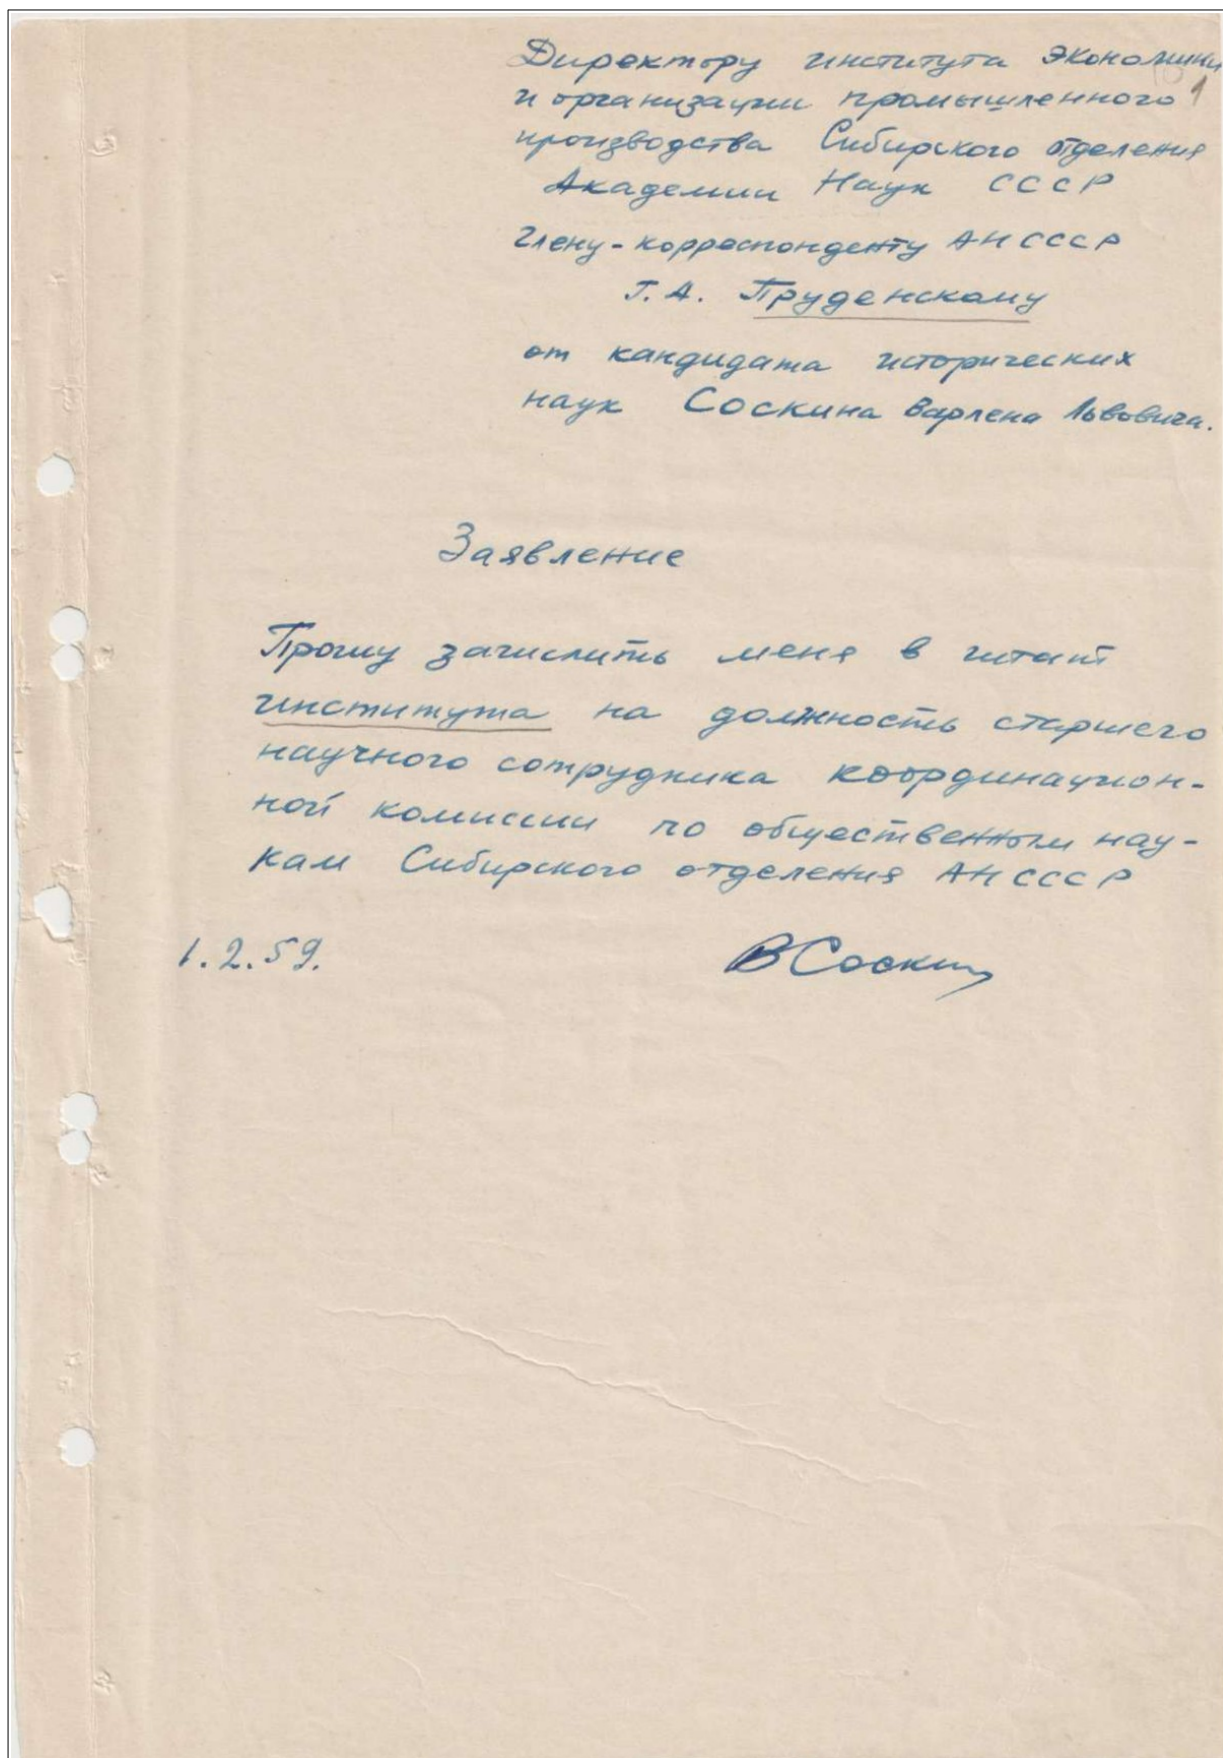 Директору института экономики
и организации промышленного 1
производства Сибирского отделения
Академии Наук СССР
Члену-корреспонденту АН СССР
Г. А. Пруденскому
от кандидата исторических
наук Соскина Варлена Львовича.
Заявление
Прошу зачислить меня в штат
института на должность старшего
научного сотрудника координацион-
ной комиссии по общественным нау-
кам Сибирского отделения АН СССР
1.2.59. ВСоскин